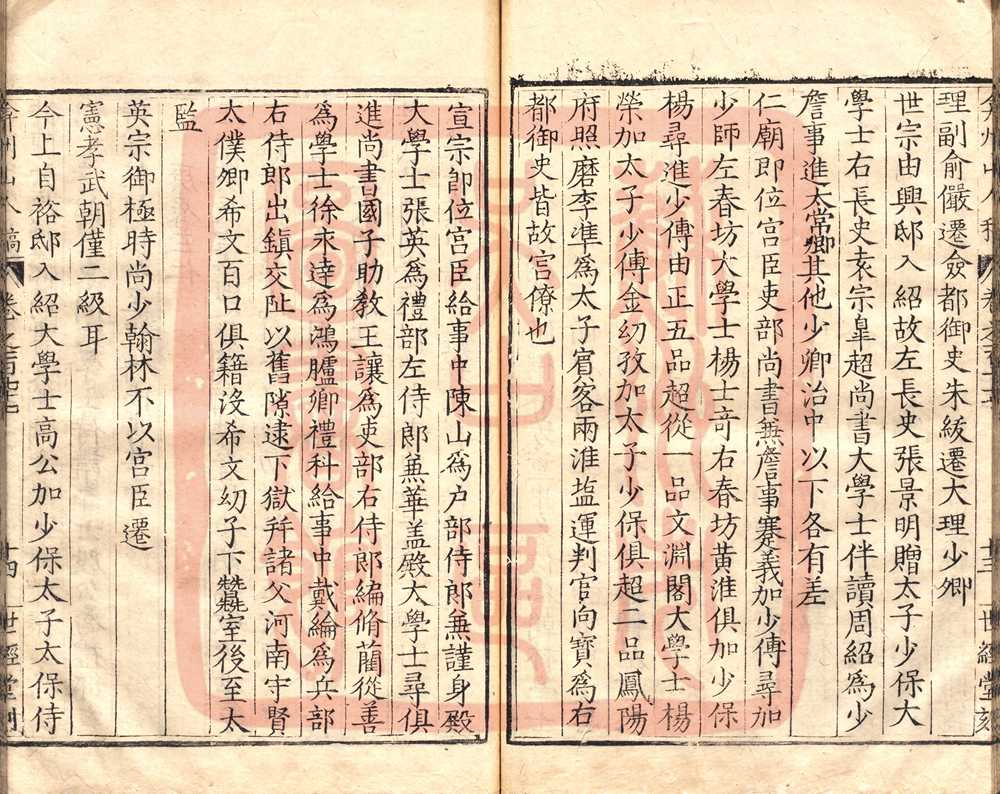 理副俞儼遷僉都御史朱紱遷大理少卿
世宗由興邸入紹故左長史張景明贈太子少保大
學士右長史袁宗皐超尚書大學士伴讀周紹爲少
詹事進太常卿其他少卿治中以下各有差
仁廟即位宮臣吏部尚書無詹事蹇義加少傅尋加
少師左春坊大學士楊士奇右春坊黃淮俱加少保
楊尋進少傅由正五品超從一品文淵閣大學士楊
榮加太子少傅金幼孜加太子少保俱超二品鳳陽
府照磨李準爲太子賓客兩淮塩運判官向寶爲右
都御史皆故官僚也
宣宗即位宮臣給事中陳山爲户部侍郎無謹身殿
大學士張英爲禮部左侍郎無華盖殿大學士尋俱
進尚書國子助教王讓爲吏部右侍郎編脩藺從善
爲學士徐來達爲鴻臚卿禮科給事中戴綸爲兵部
右侍郎出鎮交阯以舊隙逮下獄并諸父河南守賢
太僕卿希文百口俱籍沒希文幼子下蠶室後至太
監
英宗御極時尚少翰林不以宮臣遷
憲孝武朝僅二級耳
今上自裕邸入紹大學士高公加少保太子太保侍
十四 世經堂刻